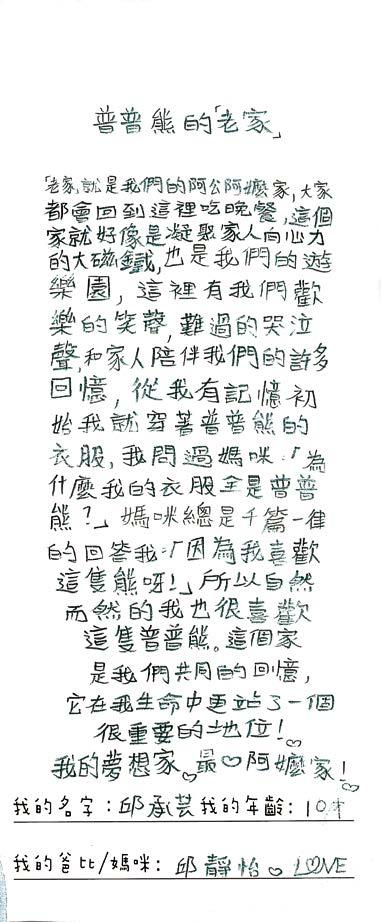 普普熊的「老家」
「老家」就是我們的阿公阿嬤家,大家
都會回到這裡吃晚餐,這個
家就好像是凝聚家人向心力
的大磁鐵,也是我們的遊
樂園,這裡有我們歡
樂的笑聲,難過的哭泣
聲,和家人陪伴我們的許多
回憶,從我有記憶初
始我就穿著普普熊的
衣服,我問過媽咪:「為
什麼我的衣服全是普普
熊?」媽咪總是千篇一律
的回答我:「因為我喜歡
這隻熊呀!」所以自然
而然的我也很喜歡
這隻普普熊。這個家
是我們共同的回憶,
它在我生命中更站了一個
很重要的地位!
我的夢想家♡最♡阿嬤家!♡
我的名字:邱承芸 我的年齡:10才
我的爸比/媽咪:邱靜怡♡LOVE